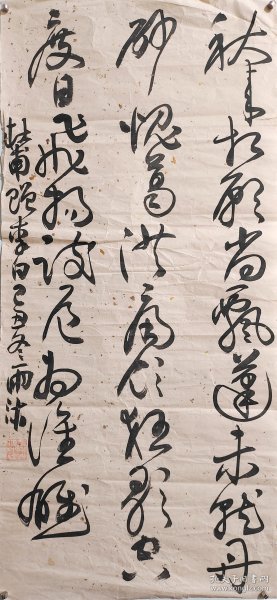 秋来相顾尚飄蓬未就丹
砂愧葛洪痛饮狂歌空
度日飞扬跋扈为谁雄
杜甫赠李白己丑冬雨
孔夫子旧书网